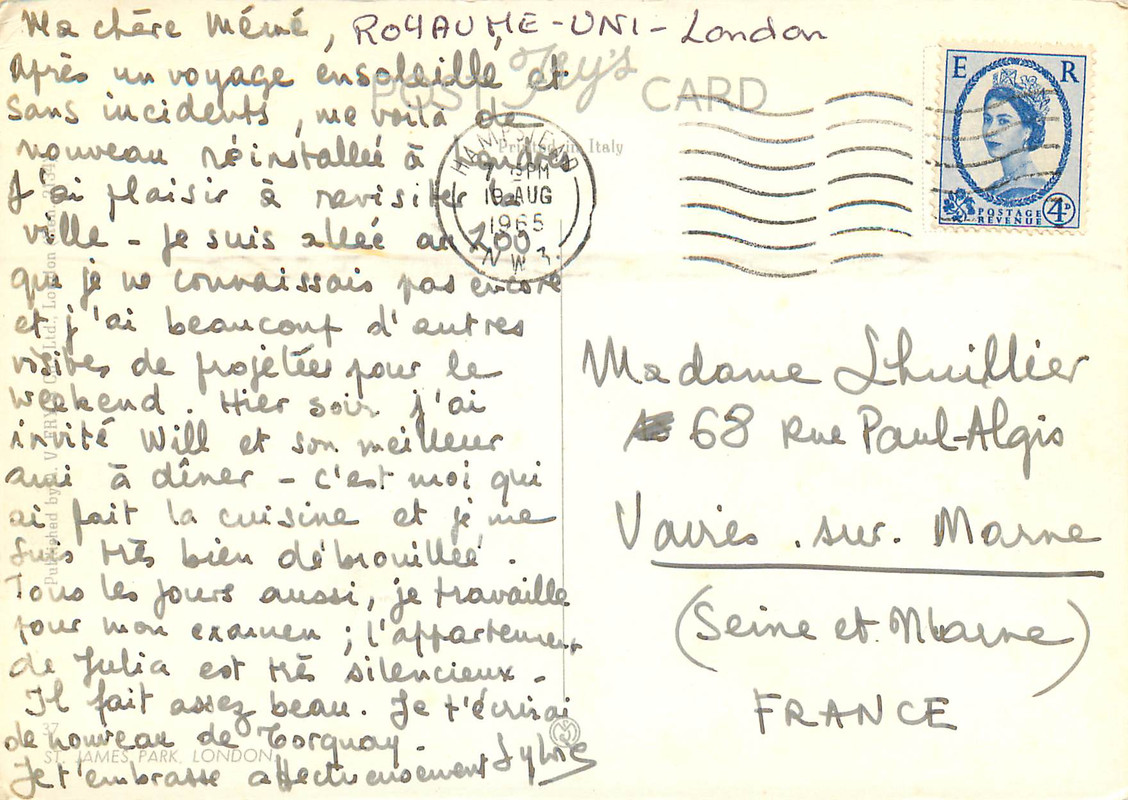 Ma chère Mémé, ROYAUME-UNI- London
Après un voyage ensoleillé et
sans incidents, me voilà de
nouveau réinstallée à Londres
J'ai plaisir à revisiter la
ville - je suis allée au Zoo
que je ne connaissais pas encore
et j'ai beaucoup d'autres
visites de projetées pour le
weekend. Hier soir j'ai
invité Will et son meilleur
ami à dîner - c'est moi qui
ai fait la cuisine et je me
suis très bien débrouillée.
Tous les jours aussi, je travaille
pour mon examen ; l'appartement
de Julia est très silencieux -
Il fait assez beau. Je t'écrirai
de nouveau de Torquay.
Je t'embrasse affectueusement Sylvie
POST CARD
Printed in Italy
HAMPSTEAD
7 15PM
19 AUG
1965
N.W.3.
E R
POSTAGE
REVENUE
4D
Madame Lhuillier
68 rue Paul-Algis
Vaires. sur. Marne
(Seine et. Marne)
FRANCE
Published by Ltd., London
37
ST. JAMES PARK, LONDON.